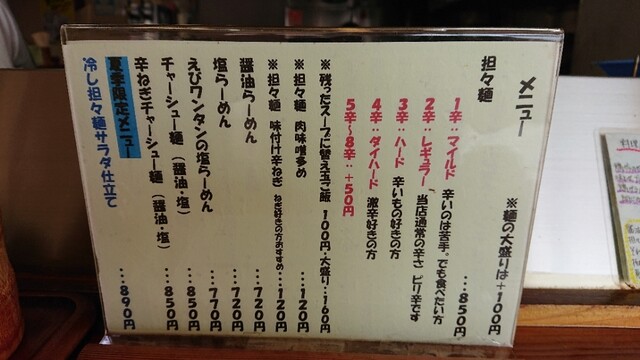 メニュー
※麺の大盛りは+100円
担々麺 ・・・850円
1辛:マイルド 辛いのは苦手。でも食べたい方
2辛:レギュラー 当店通常の辛さ ピリ辛です
3辛:ハード 辛いもの好きの方
4辛:ダイハード 激辛好きの方
5辛~8辛:+50円
※残ったスープに替え玉ご飯 100円・大盛り・・160円
※担々麺 肉味噌多め ・・・120円
※担々麺 味付け辛ねぎ ねぎ好きの方おすすめ・・・120円
醤油らーめん ・・・720円
塩らーめん ・・・720円
えびワンタンの塩らーめん ・・・770円
チャーシュー麺(醤油・塩) ・・・850円
辛ねぎチャーシュー麺(醤油・塩) ・・・850円
夏季限定メニュー
冷し担々麺サラダ仕立て ・・・890円